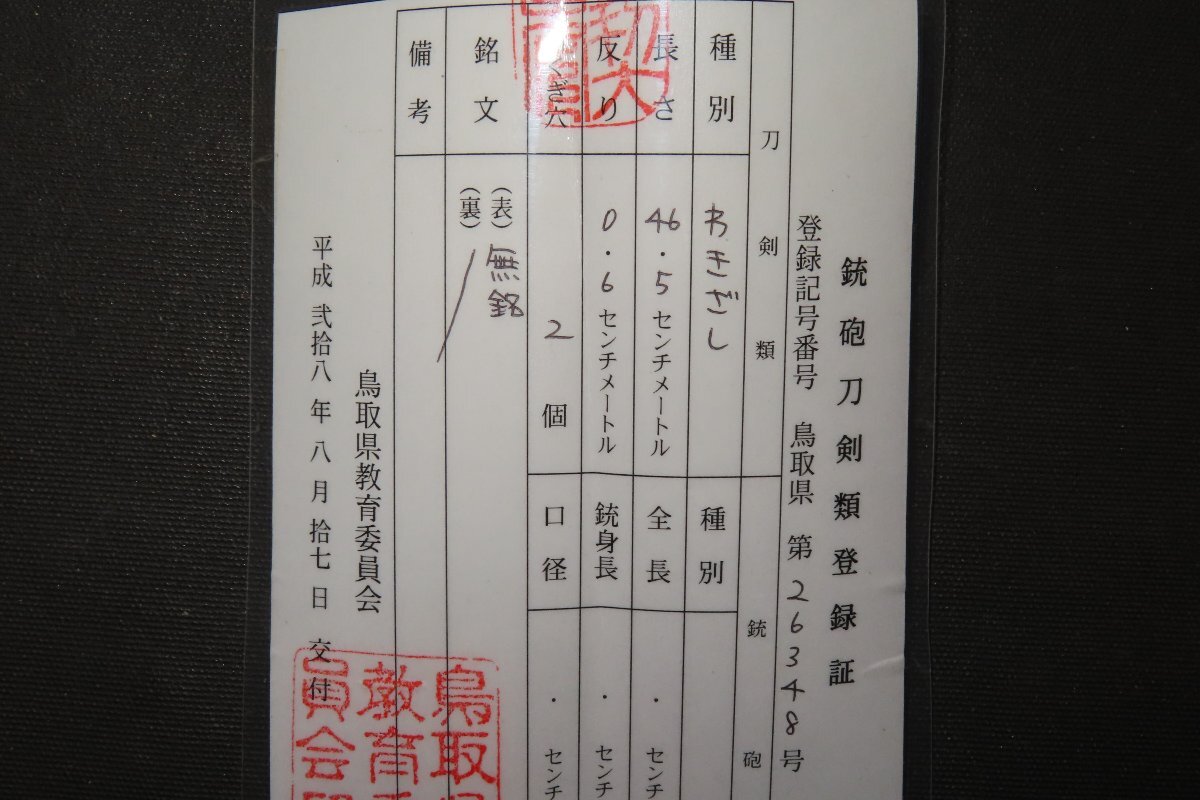 銃砲刀剣類登録証
登録記号番号 鳥取県 第26348号
刀剣類
銃砲
種別 わきざし
種別
長さ 46.5センチメートル
全長 ・ センチ
反り 0.6センチメートル
銃身長 ・ センチ
くぎ穴 2個
口径 ・ センチ
銘文 (表) 無銘
(裏)
備考
鳥取県教育委員会
平成 弐拾八 年 八 月 拾七 日 交付
鳥取
教育
員会